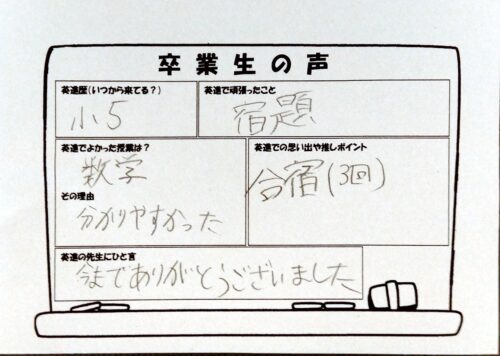 卒業生の声
英進歴(いつから来てる?)
小5
英進で頑張ったこと
宿題
英進でよかった授業は?
数学
その理由
分かりやすかった
英進での思い出や推しポイント
合宿(3回)
英進の先生にひと言
今までありがとうございました